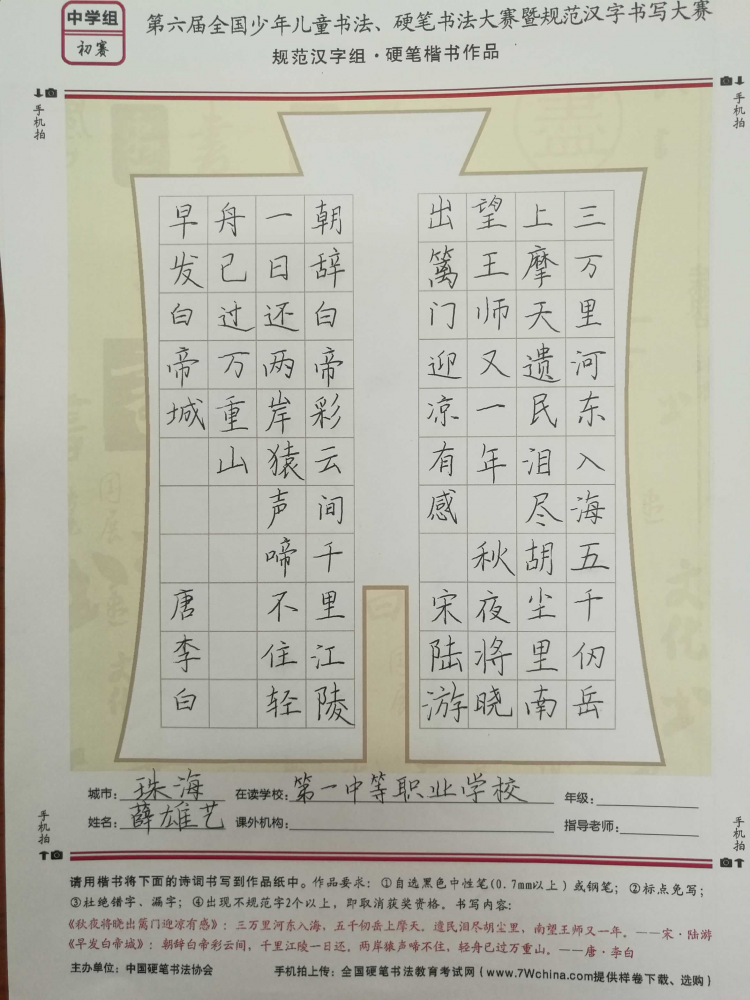 中学组
初赛
第六届全国少年儿童书法、硬笔书法大赛暨规范汉字书写大赛
规范汉字组·硬笔楷书作品
手机拍
手机拍
三万里河东入海五千仞岳
上摩天遗民泪尽胡尘里南
望王师又一年 秋夜将晓
出篱门迎凉有感 宋陆游
朝辞白帝彩云间千里江陵
一日还两岸猿声啼不住轻
舟已过万重山
早发白帝城 唐李白
城市：珠海 在读学校：第一中等职业学校 年级：
姓名：薛雄艺 课外机构： 指导老师：
手机拍
手机拍
请用楷书将下面的诗词书写到作品纸中。作品要求：①自选黑色中性笔(0.7mm以上）或钢笔；②标点免写；
③杜绝错字、漏字；④出现不规范字2个以上，即取消获奖资格。书写内容：
《秋夜将晓出篱门迎凉有感》：三万里河东入海，五千仞岳上摩天。遗民泪尽胡尘里，南望王师又一年。——宋·陆游
《早发白帝城》：朝辞白帝彩云间，千里江陵一日还。两岸猿声啼不住，轻舟已过万重山。——唐·李白
主办单位：中国硬笔书法协会 手机拍上传：全国硬笔书法教育考试网（www.7Wchina.com提供样卷下载、选购）